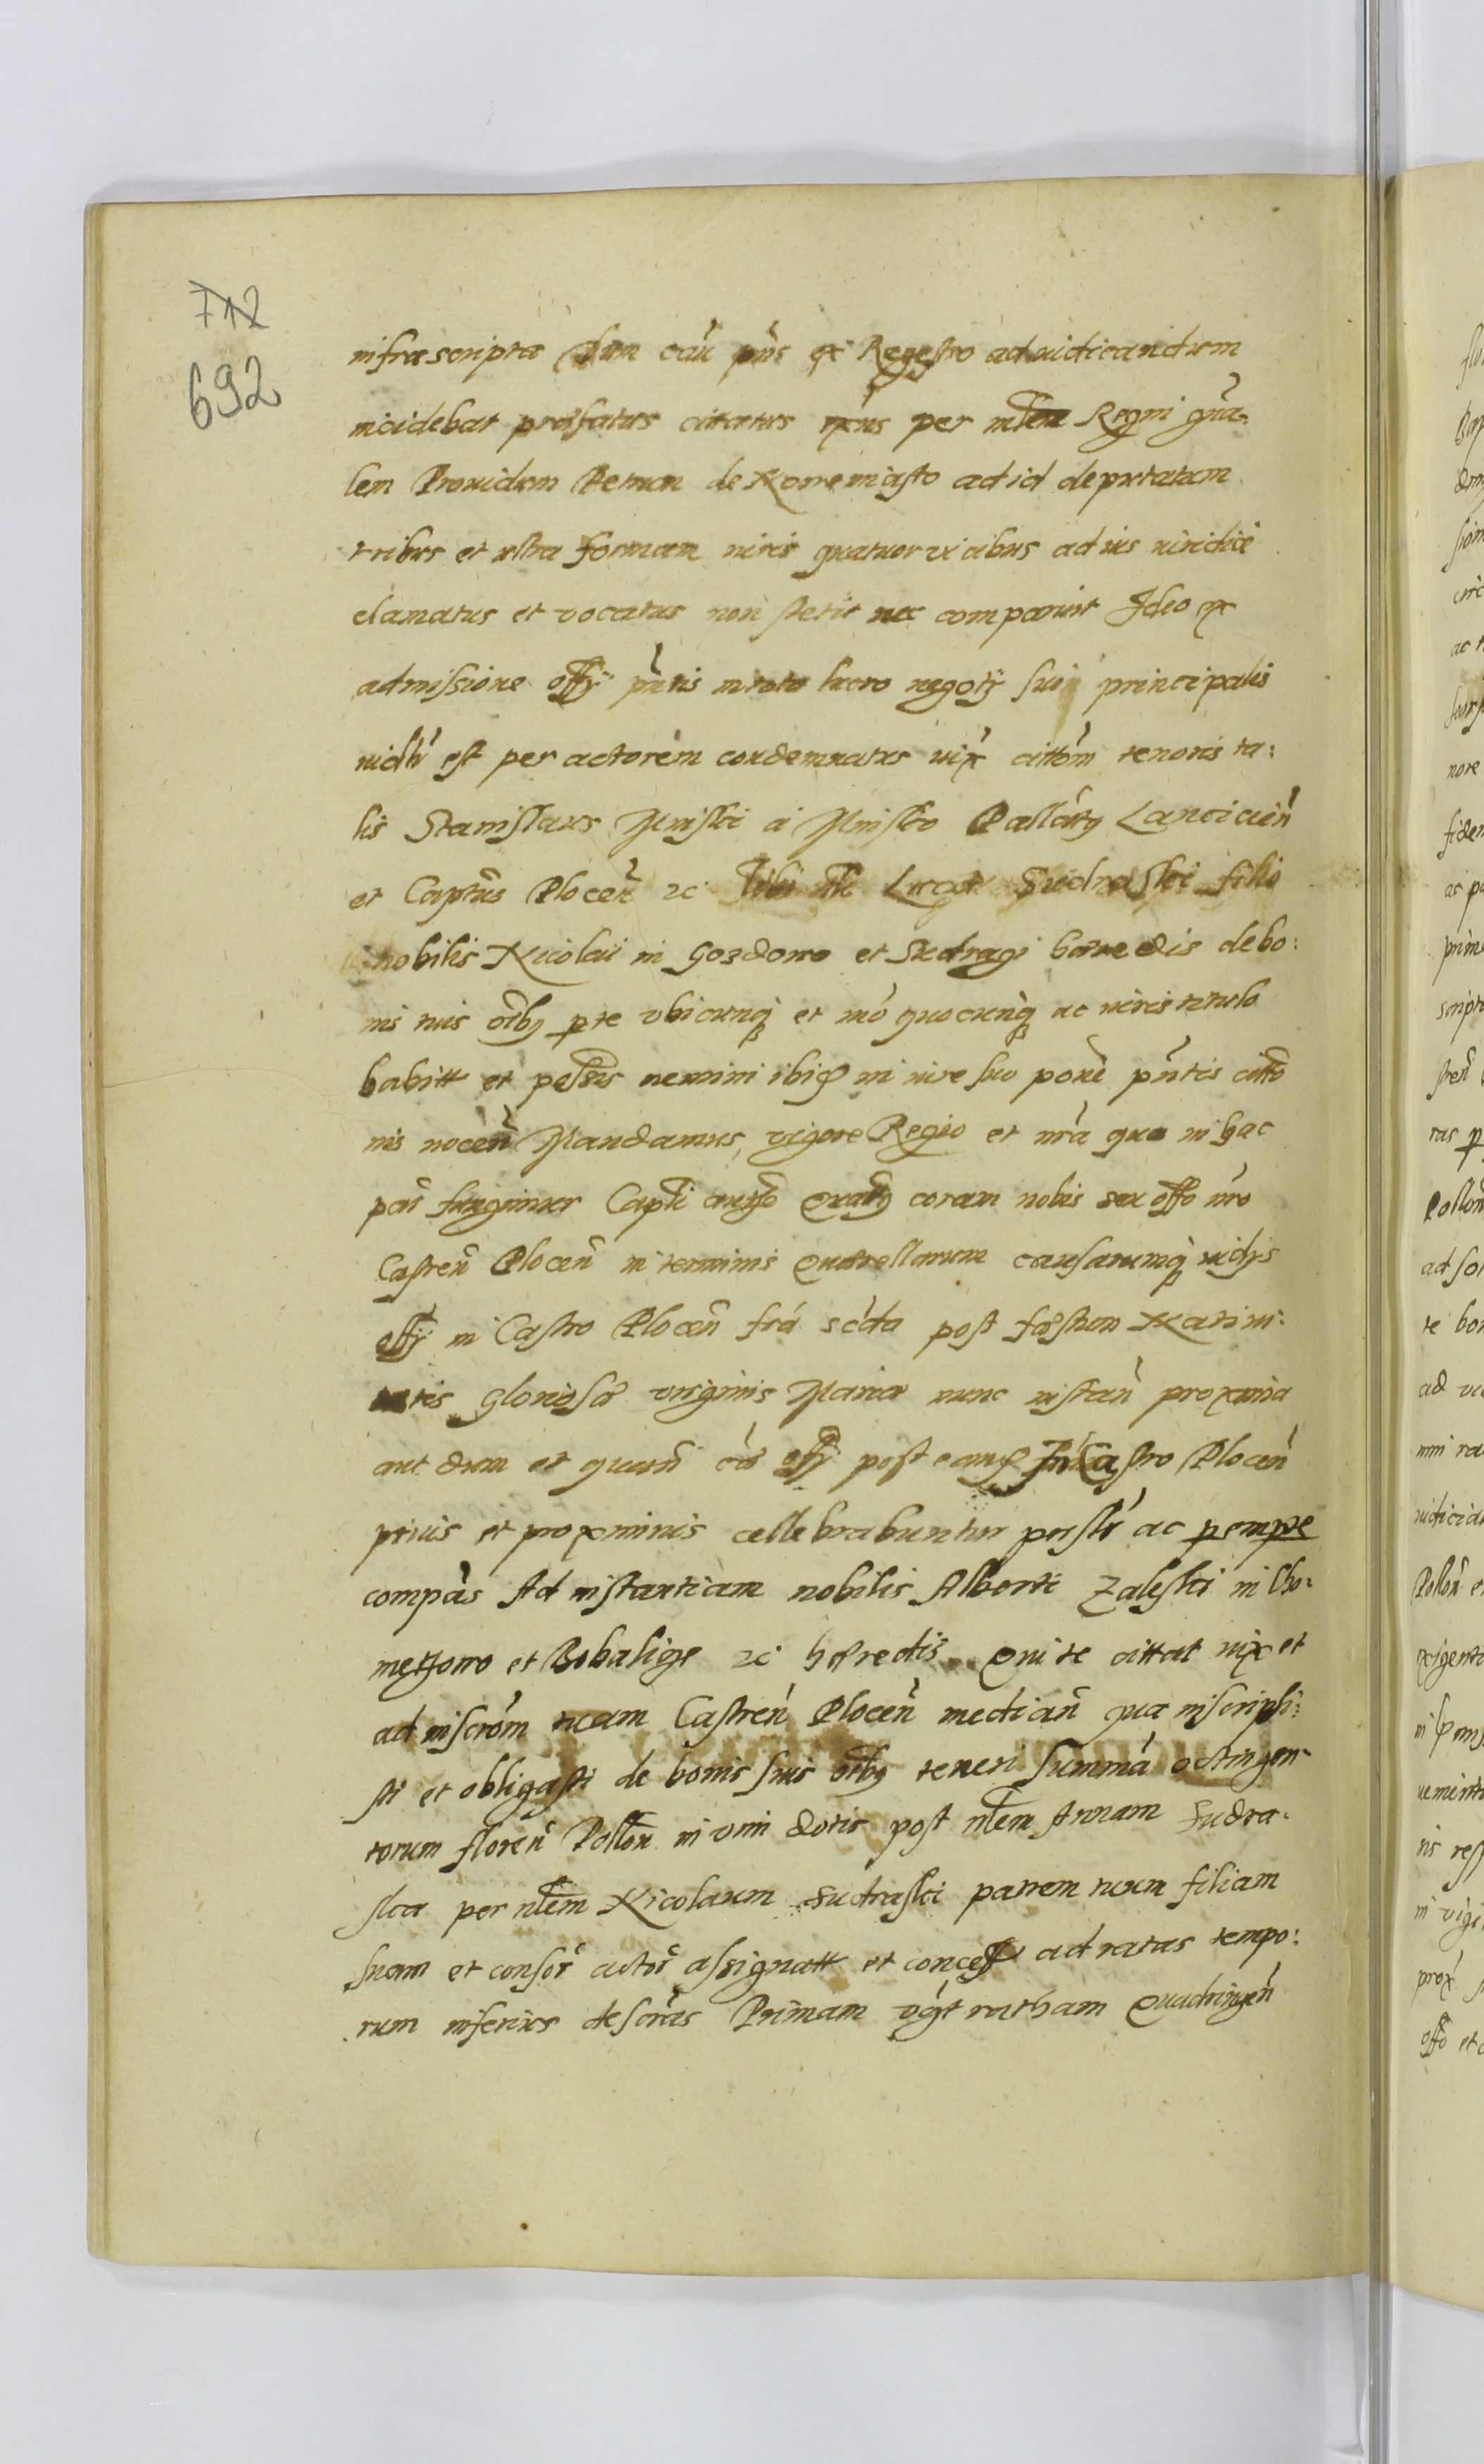 712
692
infrascripta dum cãu pñs ex Regestro adiudicandum
incidebat præfatus cittatus per mlem Regni gña-
lem Prouidum Petrum de Nowemiasto ad id deputatum
tribus et ultra formam iuris quatuor vicibus ad ius iuridice
clamatus et vocatus non stetit nec comparuit Ideo ex
admissione offij pñtis in toto lucro negotij sui principalis
iudlr est per actorem condemnatus iux cittõm tenoris ta:
lis Stanislaus Minski a Minsko Pallatq Lanciciẽn
et Captũs Plocẽn zc Tibi nli Lucæ Sudraski filio
nobilis Nicolai in Gozdowo et Sudragi hæredis de bo:
nis tuis oĩbq pte vbicunq et mõ quocunq ac iuris titulo
habitt et pelsis nemini ibiq in iure suo ponẽ pñtis citto
nis nocẽn Mandamus, vigore Regio et nrã qua in hac
par fungimur Capli autho Quatq coram nobis seu offo nro
Castreñ Plocẽn in terminis Quærellarum causarumq iudijs
offij in Castro Plocẽn frã scda post fæstum Natiui:
tatis Gloriosæ virginis Mariæ nunc instañ proxima
aut dum et quañ cã offij post eamq In Castro Plocẽn
prius et proximius cellebrabuntur perslr ac pempte
compãs Ad instantiam nobilis Alberti Zaleski in Cho:
metowo et Bobalige zc hæredis Qui te cittat iux et
ad inscrõm tuam Castreñ Plocẽn medianñ qua inscripsi:
sti et obligasti de bonis suis oĩbq teneri Summã octingen-
torum floreñ Pollon in vim dotis post nlem Annam Sudra-
ska per nlem Nicolaum Sudraski patrem tuum filiam
suam et consor actor assignatt et concess ad ratas tempo:
rum inferius descrãs Primam vgt ratham Quadringẽn